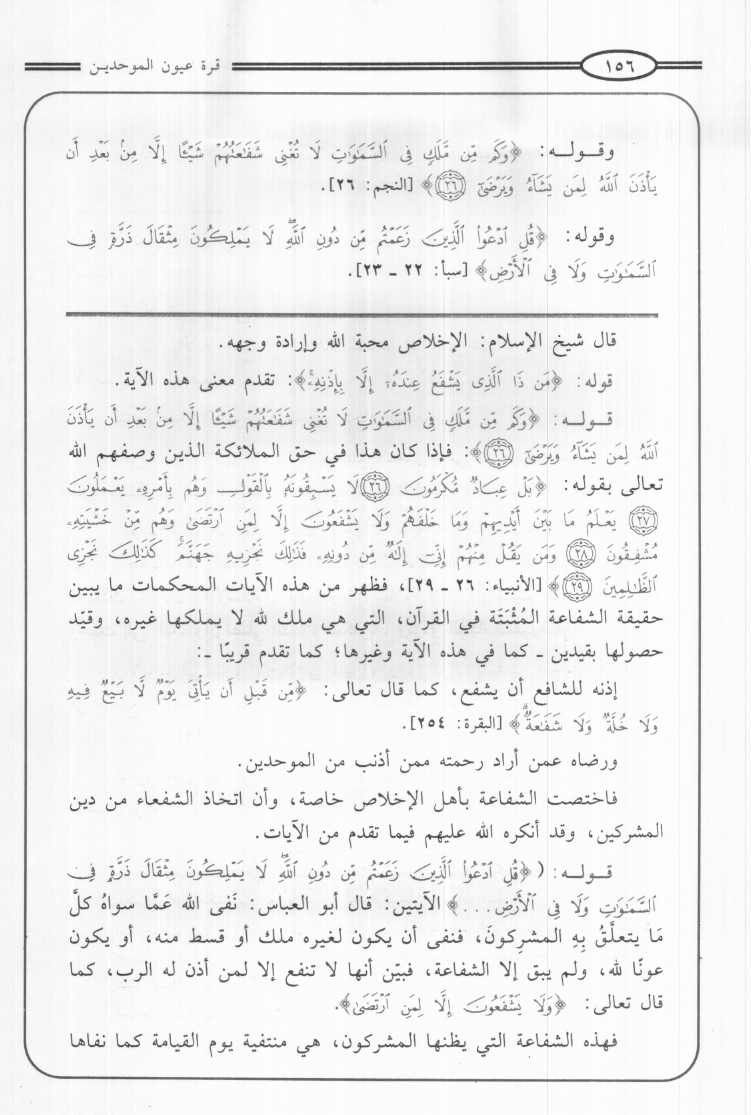 ١٥٦
قرة عيون الموحدين
وقوله: ﴿وَكَم مِّن مَّلَكٍ فِي ٱلسَّمَٰوَٰتِ لَا تُغۡنِي شَفَٰعَتُهُمۡ شَيۡـًٔا إِلَّا مِنۢ بَعۡدِ أَن
يَأۡذَنَ ٱللَّهُ لِمَن يَشَآءُ وَيَرۡضَىٰٓ ٢٦﴾ [النجم: ٢٦].
وقوله: ﴿قُلِ ٱدۡعُواْ ٱلَّذِينَ زَعَمۡتُم مِّن دُونِ ٱللَّهِۖ لَا يَمۡلِكُونَ مِثۡقَالَ ذَرَّةٖ فِي
ٱلسَّمَٰوَٰتِ وَلَا فِي ٱلۡأَرۡضِ﴾ [سبأ: ٢٢ ـ ٢٣].
قال شيخ الإسلام: الإخلاص محبة الله وإرادة وجهه.
قوله: ﴿مَن ذَا ٱلَّذِي يَشۡفَعُ عِندَهُۥٓ إِلَّا بِإِذۡنِهِۦۚ﴾: تقدم معنى هذه الآية.
قوله: ﴿وَكَم مِّن مَّلَكٍ فِي ٱلسَّمَٰوَٰتِ لَا تُغۡنِي شَفَٰعَتُهُمۡ شَيۡـًٔا إِلَّا مِنۢ بَعۡدِ أَن يَأۡذَنَ
ٱللَّهُ لِمَن يَشَآءُ وَيَرۡضَىٰٓ ٢٦﴾: فإذا كان هذا في حق الملائكة الذين وصفهم الله
تعالى بقوله: ﴿بَلۡ عِبَادٞ مُّكۡرَمُونَ ٢٦ لَا يَسۡبِقُونَهُۥ بِٱلۡقَوۡلِ وَهُم بِأَمۡرِهِۦ يَعۡمَلُونَ
٢٧ يَعۡلَمُ مَا بَيۡنَ أَيۡدِيهِمۡ وَمَا خَلۡفَهُمۡ وَلَا يَشۡفَعُونَ إِلَّا لِمَنِ ٱرۡتَضَىٰ وَهُم مِّنۡ خَشۡيَتِهِۦ
مُشۡفِقُونَ ٢٨ وَمَن يَقُلۡ مِنۡهُمۡ إِنِّيٓ إِلَٰهٞ مِّن دُونِهِۦ فَذَٰلِكَ نَجۡزِيهِ جَهَنَّمَۚ كَذَٰلِكَ نَجۡزِي
ٱلظَّٰلِمِينَ ٢٩﴾ [الأنبياء: ٢٦ ـ ٢٩]، فظهر من هذه الآيات المحكمات ما يبين
حقيقة الشفاعة المُثْبَتَة في القرآن، التي هي ملك لله لا يملكها غيره، وقيّد
حصولها بقيدين ـ كما في هذه الآية وغيرها؛ كما تقدم قريبًا ـ:
إذنه للشافع أن يشفع، كما قال تعالى: ﴿مِّن قَبۡلِ أَن يَأۡتِيَ يَوۡمٞ لَّا بَيۡعٞ فِيهِ
وَلَا خُلَّةٞ وَلَا شَفَٰعَةٞۗ﴾ [البقرة: ٢٥٤].
ورضاه عمن أراد رحمته ممن أذنب من الموحدين.
فاختصت الشفاعة بأهل الإخلاص خاصة، وأن اتخاذ الشفعاء من دين
المشركين، وقد أنكره الله عليهم فيما تقدم من الآيات.
قوله: ( ﴿قُلِ ٱدۡعُواْ ٱلَّذِينَ زَعَمۡتُم مِّن دُونِ ٱللَّهِۖ لَا يَمۡلِكُونَ مِثۡقَالَ ذَرَّةٖ فِي
ٱلسَّمَٰوَٰتِ وَلَا فِي ٱلۡأَرۡضِ...﴾ الآيتين: قال أبو العباس: نَفى الله عَمَّا سواهُ كلَّ
مَا يتعلَّقُ بِهِ المشرِكونَ، فنفى أن يكون لغيره ملك أو قسط منه، أو يكون
عونًا لله، ولم يبق إلا الشفاعة، فبيّن أنها لا تنفع إلا لمن أذن له الرب، كما
قال تعالى: ﴿وَلَا يَشۡفَعُونَ إِلَّا لِمَنِ ٱرۡتَضَىٰ﴾.
فهذه الشفاعة التي يظنها المشركون، هي منتفية يوم القيامة كما نفاها